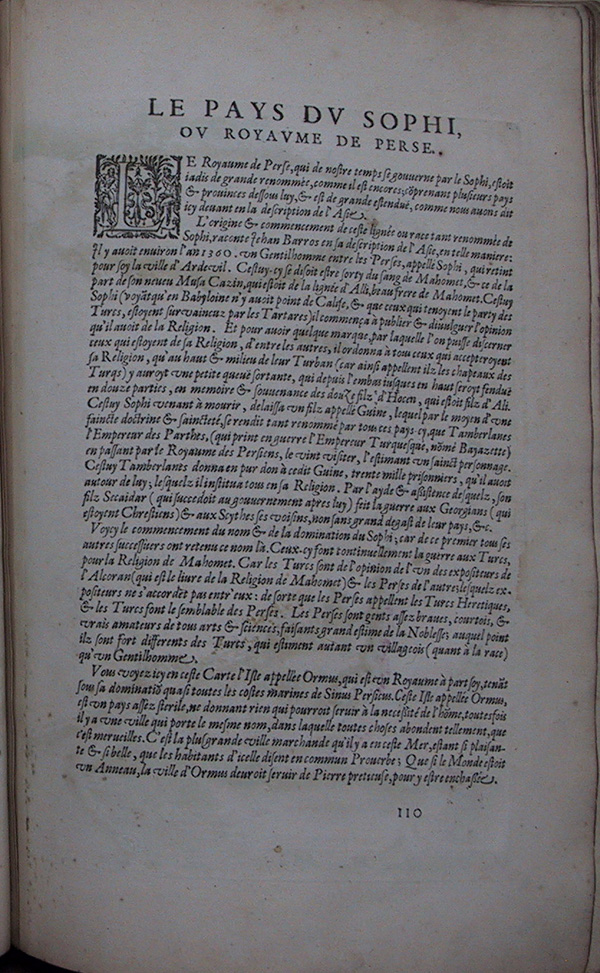 LE PAYS DV SOPHI,
OV ROYAVME DE PERSE.
LE Royaume de Perse, qui de nostre temps se gouuerne par le Sophi, estoit
iadis de grande renommée, comme il est encores; cõprenant plusieurs pays
& prouinces dessous luy, & est de grande estenduë, comme nous auons dit
icy deuant en la description de l'Asie.
L'origine & commencement de ceste lignée ou race tant renommée de
Sophi, raconte Iehan Barros en sa description de l'Asie, en telle maniere:
Il y auoit enuiron l'an 1360. vn Gentilhomme entre les Perses, appellé Sophi, qui retint
pour soy la ville d'Arde-vil. Cestuy-cy se disoit estre sorty du sang de Mahomet, & ce de la
part de son neueu Musa Cazin, qui estoit de la lignée d'Alli, beau frere de Mahomet. Cestuy
Sophi (voyãt qu'en Babyloine n'y auoit point de Calife, & que ceux qui tenoyent le party des
Turcs, estoyent survaincuz par les Tartares) il commença à publier & diuulguer l'opinion
qu'il auoit de la Religion. Et pour auoir quelque marque, par laquelle l'on puisse discerner
ceux qui estoyent de sa Religion, d'entre les autres, il ordonna à tous ceux qui accepteroyent
sa Religion, qu'au haut & milieu de leur Turban (car ainsi appellent ilz les chapeaux des
Turqs) y auroyt vne petite queuë sortante, qui depuis l'embas iusques en haut seroyt fenduë
en douze parties, en memoire & souuenance des douze filz d'Hocen, qui estoit filz d'Ali.
Cestuy Sophi venant à mourir, delaissa vn filz appellé Guine, lequel par le moyen d'vne
faincte doctrine & saincteté, se rendit tant renommé par tous ces pays-cy, que Tamberlanes
l'Empereur des Parthes, (qui print en guerre l'Empereur Turquesque, nõmé Bayazette)
en passant par le Royaume des Persiens, le vint visiter, l'estimant vn sainct personnage.
Cestuy Tamberlants donna en pur don à cedit Guine, trente mille prisonniers, qu'il auoit
autour de luy; lesquelz il institua tous en sa Religion. Par l'ayde & asistence desquelz, son
filz Secaidar (qui succedoit au gouuernement apres luy) feit la guerre aux Georgians (qui
estoyent Chrestiens) & aux Scythes ses voisins, non sans grand degast de leur pays, &c.
Voycy le commencement du nom & de la domination du Sophi; car de ce premier tous ses
autres successiuers ont retenu ce nom là. Ceux-cy font continuellement la guerre aux Turcs,
pour la Religion de Mahomet. Car les Turcs sont de l'opinion de l'vn des expositeurs de
l'Alcoran (qui est le liure de la Religion de Mahomet) & les Perses de l'autre; lesquelz ex-
positeurs ne s'accordẽt pas entr'eux: de sorte que les Perses appellent les Turcs Heretiques,
& les Turcs font le semblable des Perses. Les Perses sont gents assez braues, courtois, &
vrais amateurs de tous arts & sciences, faisants grand estime de la Noblesse; auquel point
ilz sont fort differents des Turcs, qui estiment autant vn villageois (quant à la race)
qu'vn Gentilhomme.
Vous voyez icy en ceste Carte l'Isle appellée Ormus, qui est vn Royaume à part soy, tenãt
sous sa dominatiõ quasi toutes les costes marines de Sinus Persicus. Ceste Isle appellée Ormus,
est vn pays assez sterile, ne donnant rien qui pourroit seruir à la necessité de l'hõme, toutesfois
il y a vne ville qui porte le mesme nom, dans laquelle toutes choses abondent tellement, que
c'est merueilles. C'est la plus grande ville marchande qu'il y a en ceste Mer, estant si plaisan-
te & si belle, que les habitants d'icelle disent en commun Prouerbe; Que si le Monde estoit
vn Anneau, la ville d'Ormus deuroit seruir de Pierre pretieuse, pour y estre enchassée.
110